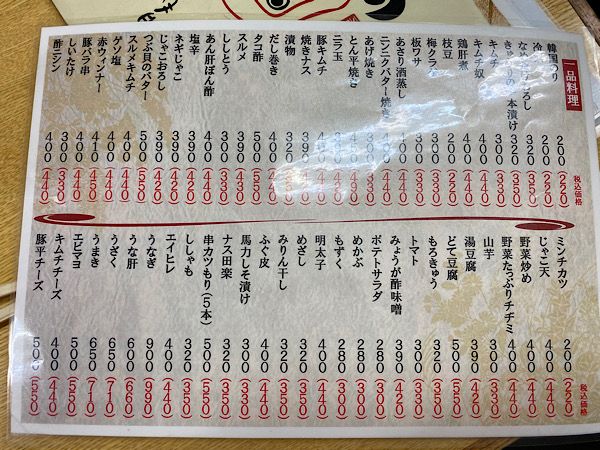 一品料理
税込価格
韓国のり 200 (220)
冷 200 (220)
きゅうりの一本漬け
キムチ 300 (330)
キムチ奴
鶏肝煮 400 (440)
枝豆 200 (220)
梅クラゲ 300 (330)
板ワサ 300 (330)
あさり酒蒸し 400 (440)
ニンニクバター焼き 400 (440)
あげ焼き 300 (330)
とん平焼き
ニラ玉 400 (440)
豚キムチ 400 (440)
焼きナス 390
漬物 320
だし巻き 400 (440)
タコ酢 500 (550)
スルメ 390
ししとう 390
あん肝ぽん酢 400 (440)
塩辛 390 (420)
ネギじゃこ 390 (420)
じゃこおろし 390 (420)
つぶ貝のバター 500 (550)
スルメキムチ 400 (440)
ゲソ塩 400 (440)
赤ウィンナー 410 (450)
豚バラ串 400 (440)
しいたけ 300 (330)
酢ニシン 400 (440)
税込価格
ミンチカツ 200 (220)
じゃこ天 400 (440)
野菜炒め 400 (440)
野菜たっぷりチヂミ 400 (440)
山芋 300 (330)
湯豆腐 400 (440)
どて豆腐 500 (550)
もろきゅう 320 (350)
トマト 300 (330)
みょうが酢味噌 390 (420)
ポテトサラダ 300 (330)
めかぶ 280 (300)
もずく 280 (300)
明太子 400 (440)
めざし 320 (350)
みりん干し 320 (350)
ふぐ皮 400 (440)
馬力しそ漬け 300 (330)
ナス田楽 320 (350)
串カツもり(5本) 500 (550)
ししゃも 320 (350)
エイヒレ 400 (440)
うなぎ 900 (990)
うな肝 600 (660)
うざく 650 (710)
うまき 650 (710)
エビマヨ 500 (550)
キムチチーズ 400 (440)
豚平チーズ 500 (550)